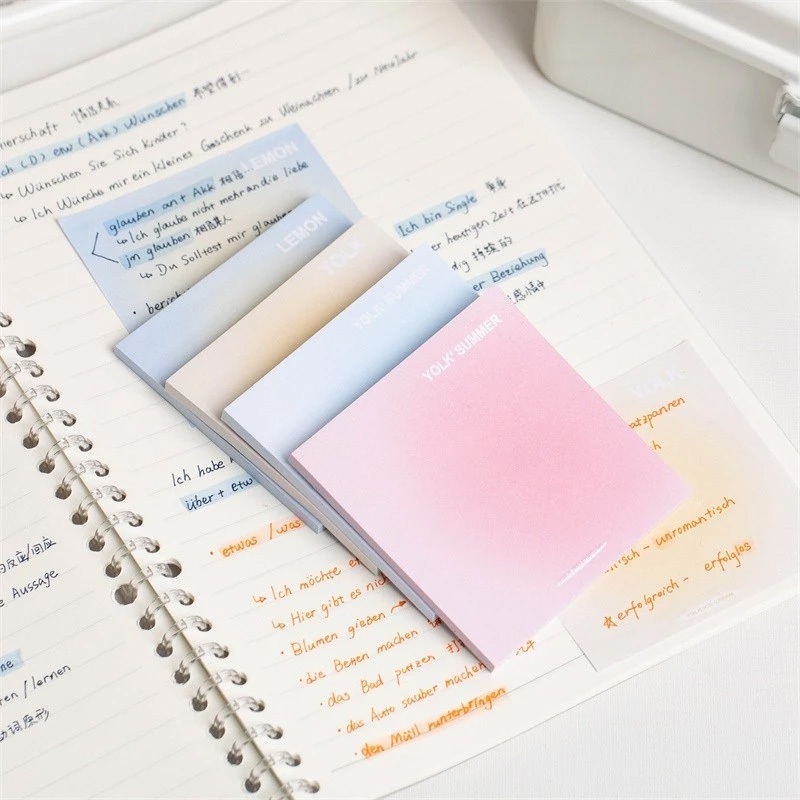 erschaft
ch (D) etw (Akk) Wünschen
↳ Wünschen Sie Sich Kinder?
↳ Ich Wünche mir ein kleines Geschenk zu Weinachten / zu Neujahr
LEMON
glauben an + Akk 相信...
↳ Ich glaube nicht mehr an die liebe
jm glauben 相信某人
↳ Du Solltest mir glauben
LEMON
YOLK
YOLK' SUMMER
YOLK' SUMMER
Ich bin Single 单身
er heutigen Zeit
dig 持续的
er Beziehung
Ich habe
über + Etw
• etwas / was
↳ Ich möchte
↳ Hier gibt es nich
• Blumen gießen
• die Betten machen
• das Bad putzen
• das Auto sauber machen
• den Müll runterbringen
YOLK
atzpanren
isch - unromantisch
☆ erfolgreich - erfolglos
的反应/回应
e Aussage
me
en / lernen
动词原形